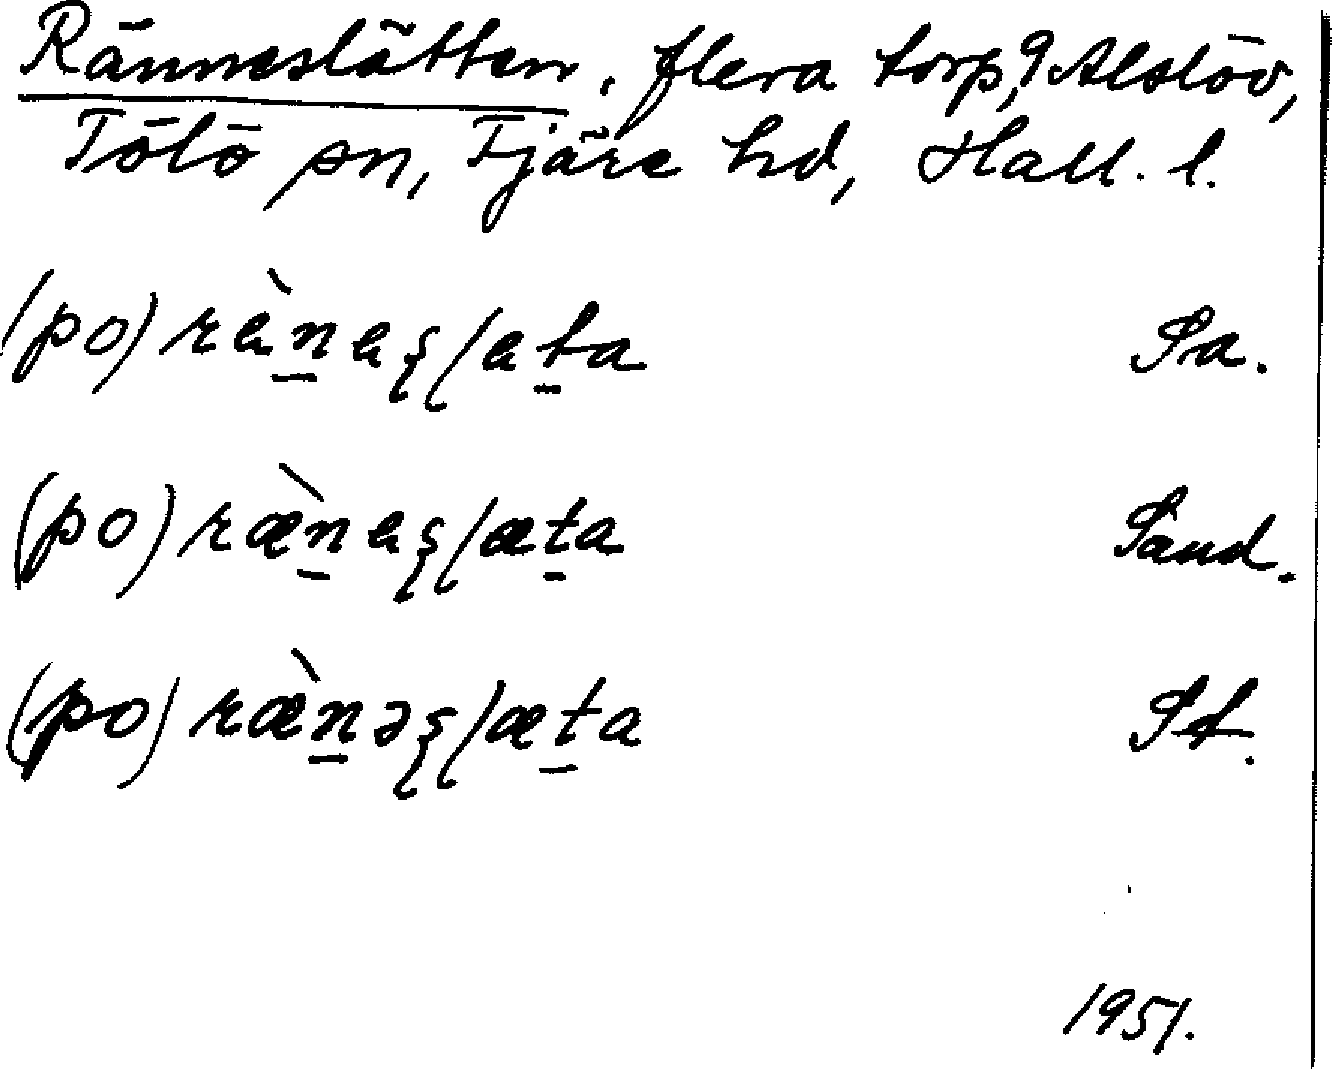 Ränneslätten, flera torp, Alslöv,
Tölö sn, Fjäre hd, Hall. l.
(po) rèn̲eʂlet̲a Sa.
(po) ræ̀n̲eʂlæt̲a Sand.
(po) ræ̀n̲əʂlæt̲a St.
1951.